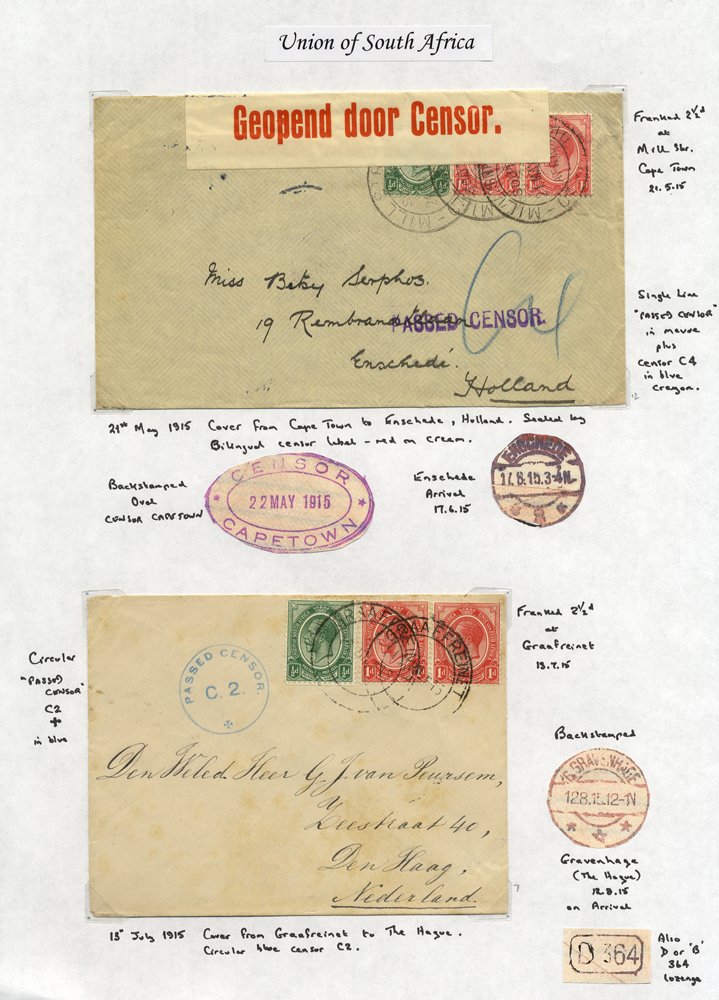 Union of South Africa
Geopend door Censor.
Franked 2½d
at
Mill Str.
Cape Town
21.5.15
MILL STR
Miss Betsy Serphos.
19
PASSED CENSOR.
C4
Enschedé.
Holland
Single Line
"PASSED CENSOR"
in mauve
plus
censor C4
in blue
crayon.
21st May 1915 Cover from Cape Town to Enschede, Holland. Sealed by
Bilingual censor label - red on cream.
Backstamped
Oval
CENSOR CAPETOWN
CENSOR
22 MAY 1915
CAPETOWN
Enschede
Arrival
17.6.15
ENSCHEDE
17.6.15.3-4N.
Franked 2½d
at
Graafreinet
13.7.15
½d ½d
1d 1d
1d 1d
GRAAFFREINET
Circular
"PASSED
CENSOR"
C2
in blue
PASSED CENSOR.
C. 2.
Den Weled. Heer G. J. van Puersem,
Zeestraat 40,
Den Haag,
Nederland.
Backstamped
'S GRAVENHAGE
12.8.15.12-1N
Gravenhage
(The Hague)
12.8.15
on Arrival
13th July 1915 Cover from Graafreinet to The Hague.
Circular blue censor C2.
D 364
Also
D or 'B'
364
lozenge